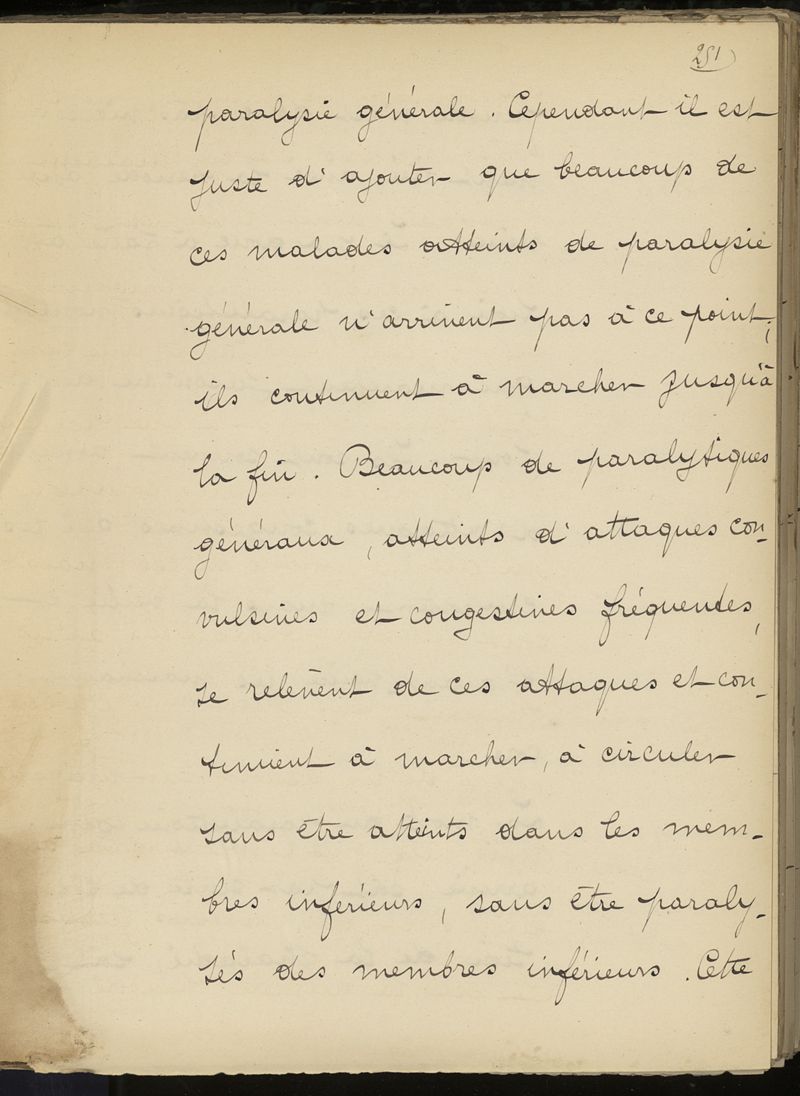 251
paralysie générale. Cependant il est
juste d'ajouter que beaucoup de
ces malades atteints de paralysie
générale n'arrivent pas à ce point;
ils continuent à marcher jusqu'à
la fin. Beaucoup de paralytiques
généraux, atteints d'attaques con-
vulsives et congestives fréquentes,
se relèvent de ces attaques et con-
tinuent à marcher, à circuler
sans être atteints dans les mem-
bres inférieurs, sans être paraly-
sés des membres inférieurs. Cette